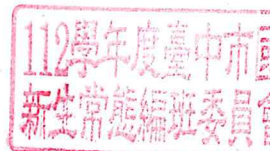 112學年度臺中市
新生常態編班委員會